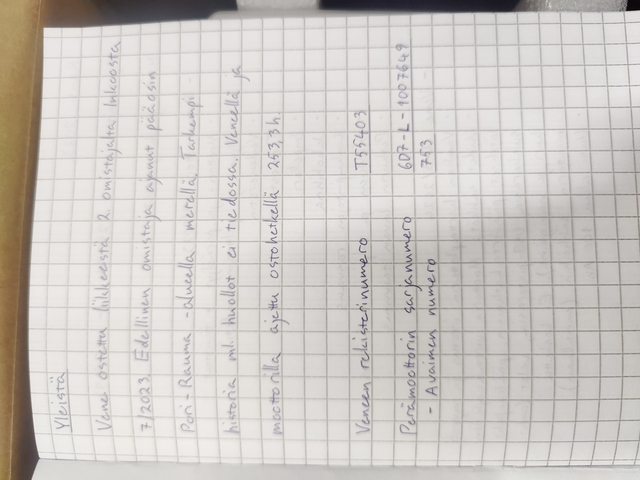 Yleistä
Vene ostettu liikkeestä 2. omistajalta liikkeestä
7/2023. Edellinen omistaja ajanut pääosin
Pori-Rauma -alueella merellä. Tarkempi
historia ml. huollot ei tiedossa. Veneellä ja
moottorilla ajettu ostohetkellä 253,3 h.
Veneen rekisterinumero T55403
Perämoottorin sarjanumero 6D7-L-1007649
- Avaimen numero 753